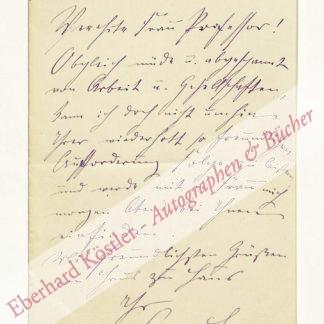 Verehrte Frau Professor!
Obgleich müde u. abgespannt
von Arbeit u. Gesellschaften,
kann ich doch nicht umhin,
Ihrer wiederholt so freundlichen
Aufforderung Folge zu leisten
und werde mit Frau mich
morgen Abend bei Ihnen
einfinden.
Mit freundlichsten Grüßen
von Haus zu Haus
Ihr
Eberhard Köstler - Autographen & Bücher